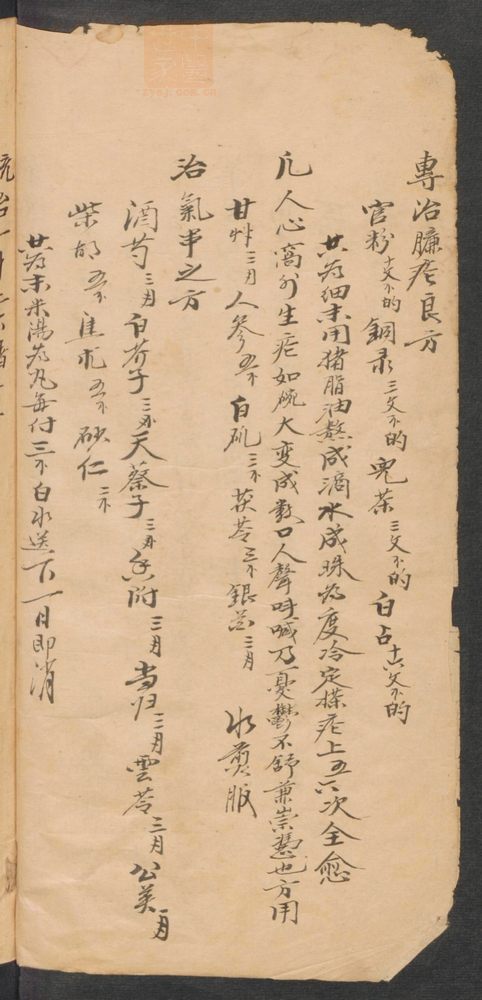 專治臁疮良方
官粉十文小的 銅录三文小的 兒茶三文小的 白占十六文小的
共为细末用猪脂油熬成滴水成珠为度冷定搽疮上五六次全愈
凡人心窝外生疮如碗大变成数口人聲呌喊乃憂鬱不舒兼崇憑也方用
甘艸三月 人參五小 白矾三小 茯苓三小 銀花三月 水煎服
治氣串之方
酒芍三月 白芥子三小 天蔡子三小 香附三月 当归三月 雲苓三月 公英一月
柴胡五小 五小 砂仁三小
共为末米湯为丸每付三小白水送下一日即消